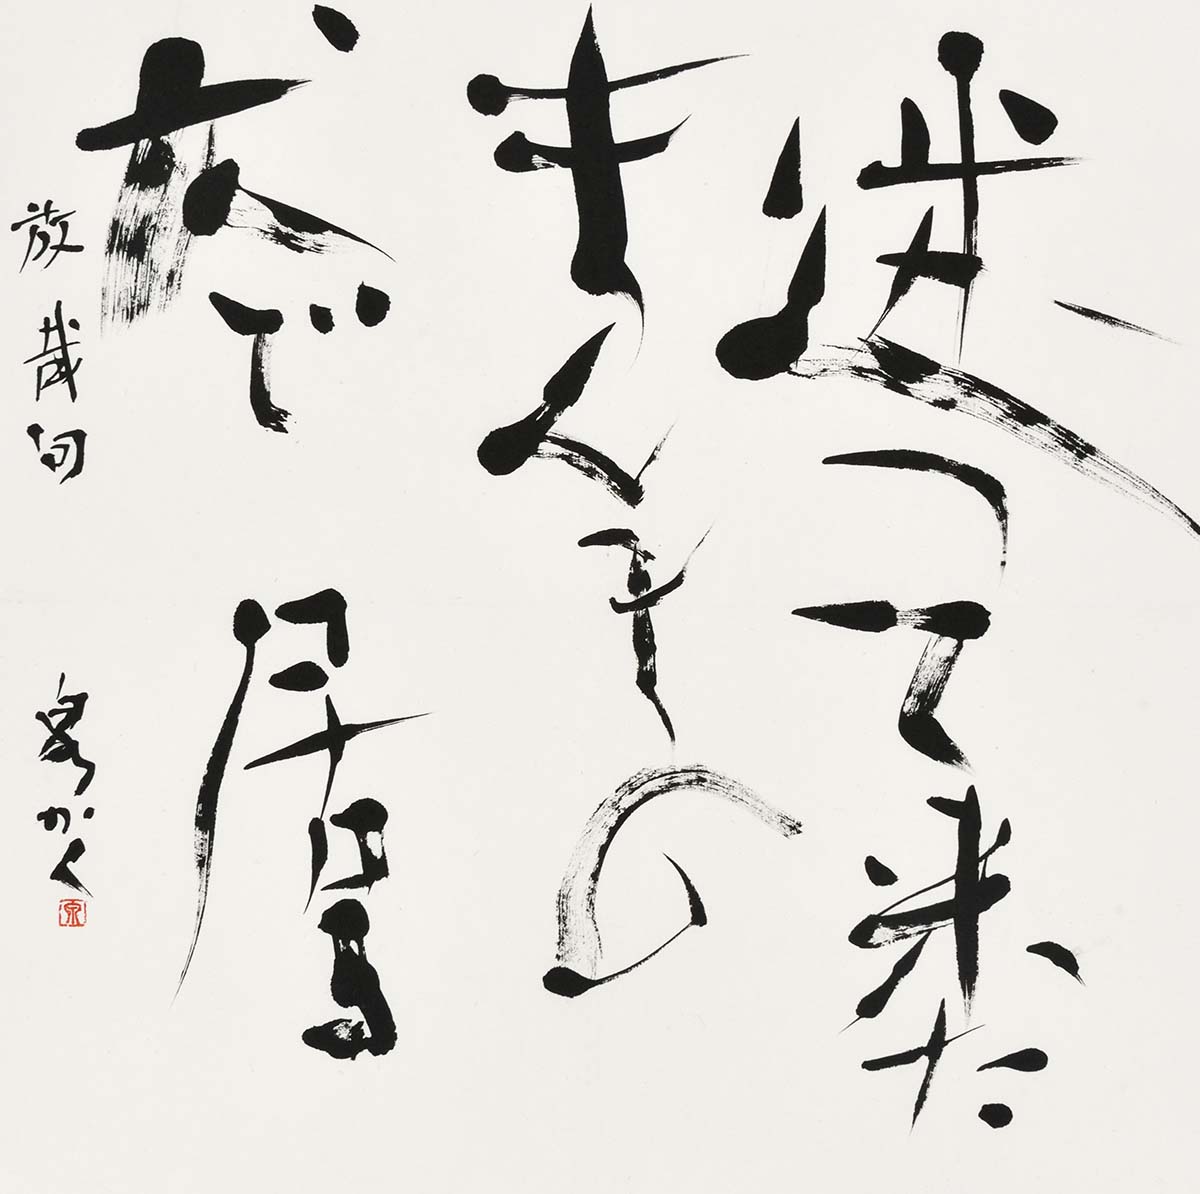 迷って来た
まんまの
犬で居る
放哉句 泉かく
泉